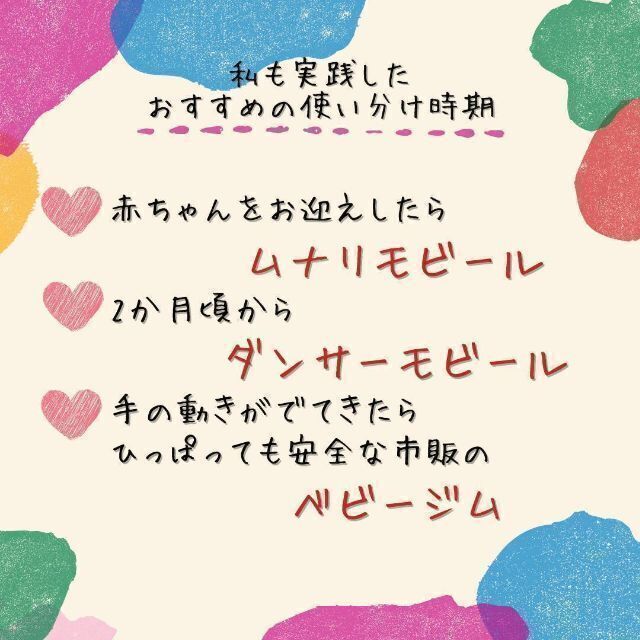 私も実践した
おすすめの使い分け時期
赤ちゃんをお迎えしたら
ムナリモビール
2か月頃から
ダンサーモビール
手の動きがでてきたら
ひっぱっても安全な市販の
ベビージム